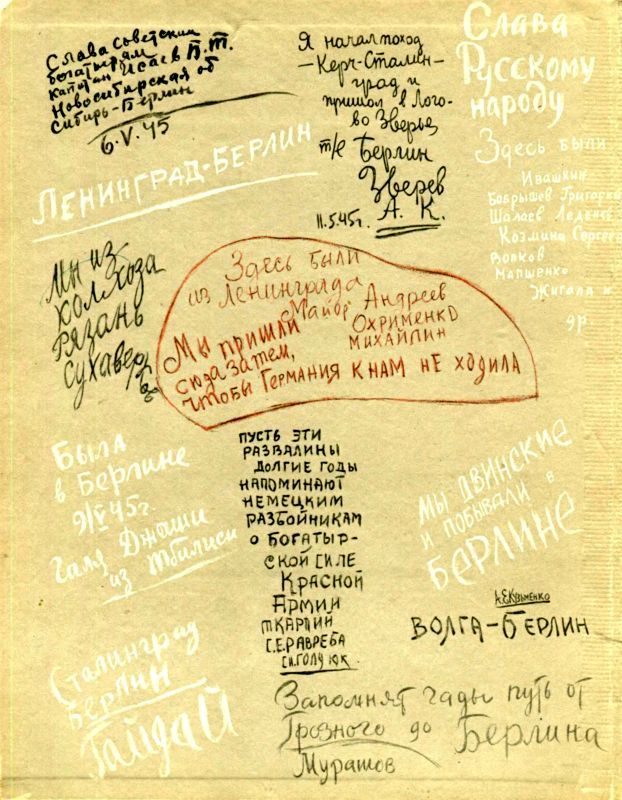 Слава советским
богатырям
капитан Исаев П.Т.
Новосибирская об
Сибирь-Берлин
6.V.45
Ленинград-Берлин
Я начал поход
—Керч-Сталин—
град и
пришол в Лого-
во Зверье
т/е Берлин
Зверев
А. К.
11.5.45г.
Слава
Русскому
народу
Здесь были
Ивашкин
Бобрышев Григорь
Шалаев
Козмина Сергее
Волков
Мапшенко
Жигала к
9р.
Мы из
колхоза
Рязань
Здесь были
из Ленинграда
Майор Андреев
Охрименко
Михайлин
Мы пришли
сюда затем,
чтобы Германия к нам не ходила
Была
в Берлине
9/V 45г.
Галя Джаши
из Тбилиси
пусть эти
развалины
долгие годы
напоминают
немецким
разбойникам
о богатыр-
ской силе
Красной
Армии
т.Карпий
С.Е.Равреба
Мы двинские
и побывали в
Берлине
А.Е.Кузьменко
Волга-Берлин
Сталинград
Берлин
Гайдай
Запомнят гады путь от
Грозного до Берлина
Мурашов